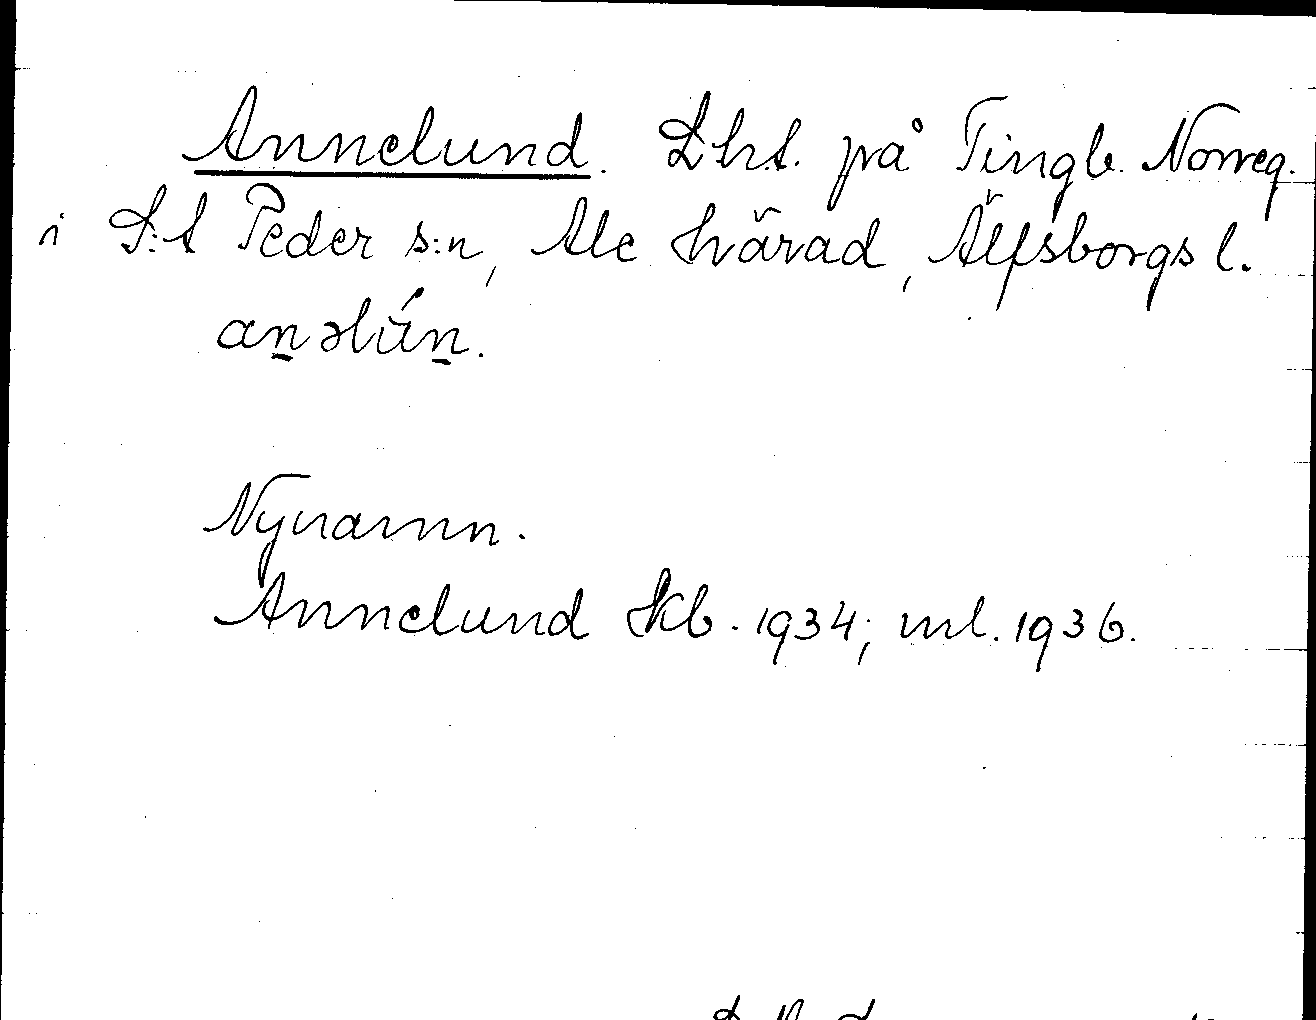 Annelund. Lht. på Tingb. Norreg.
i S:t Peder s:n, Ale härad, Älfsborgs l.
aṉəlúṉ.
Nynamn.
Annelund Kb. 1934; ml. 1936.